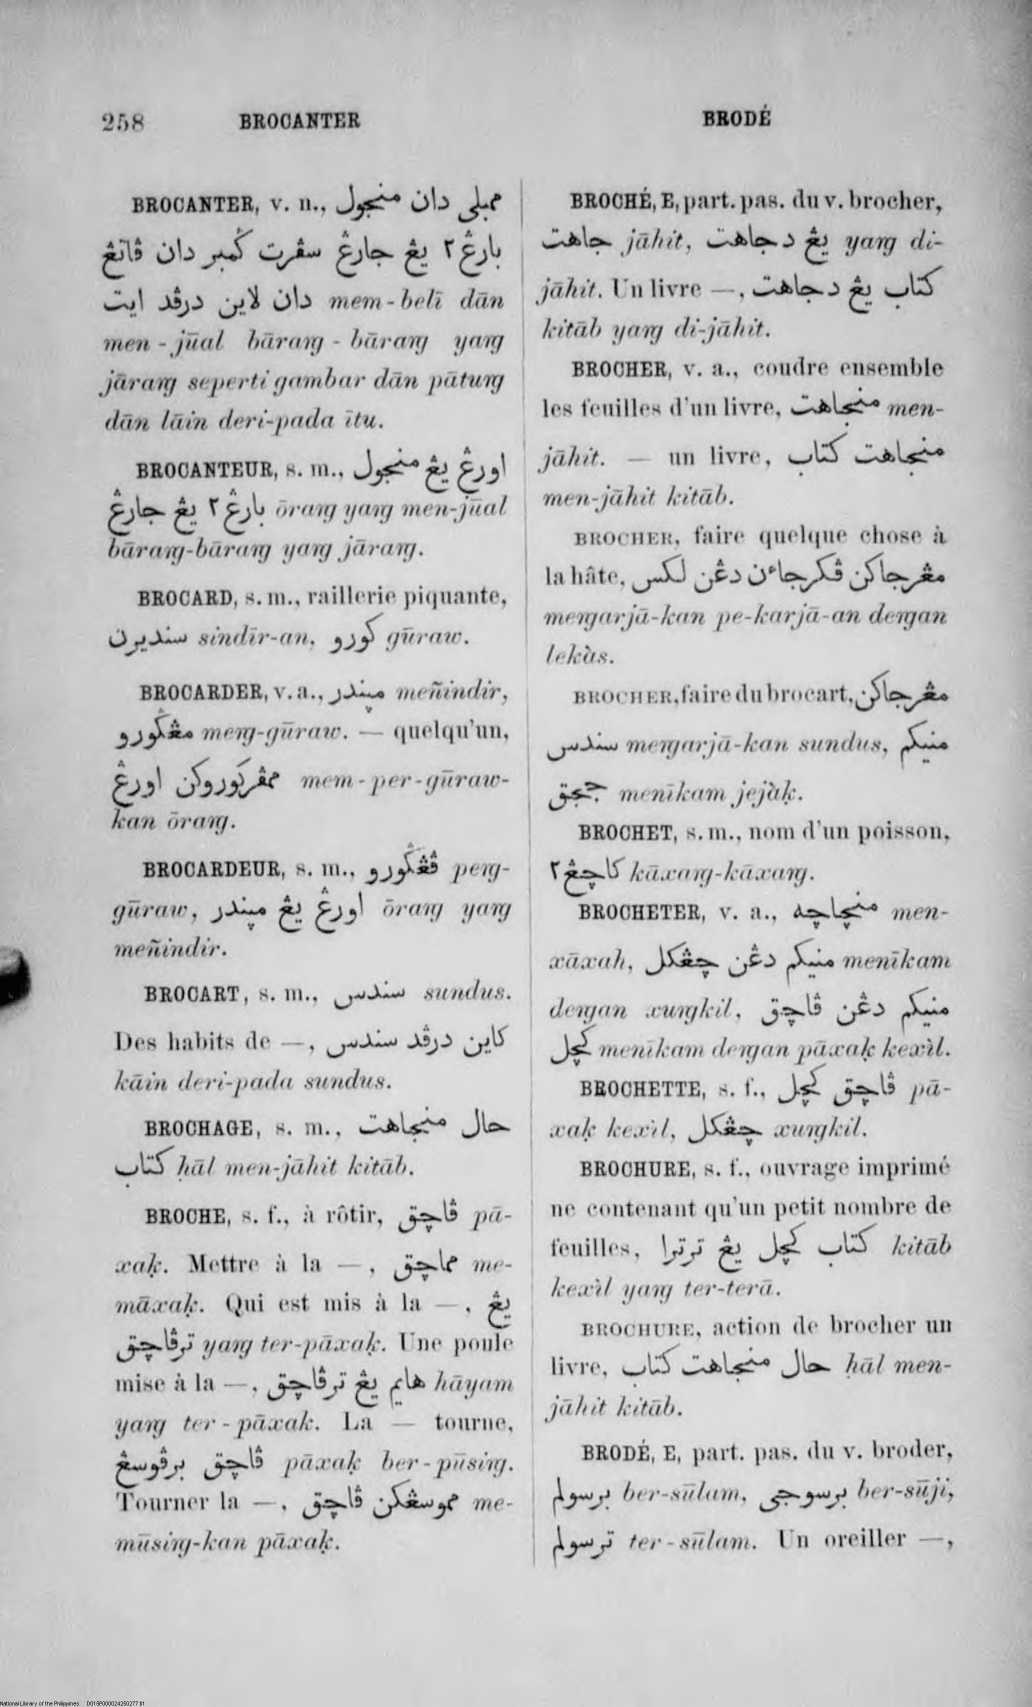 258 BROCANTER BRODÉ
BROCANTER, v. n., ممبلي دان منجول
بارڠ٢ يڠ جارڠ سڤرت ݢمبر دان ڤاتڠ
دان لاين درڤد ايت mem-belī dān
men-jūal bārang-bārang yang
jārang seperti gambar dān pātung
dān lāin deri-pada ītu.
BROCANTEUR, s. m., اورڠ يڠ منجول
بارڠ٢ يڠ جارڠ ōrang yang men-jūal
bārang-bārang yang jārang.
BROCARD, s. m., raillerie piquante,
سنديرن sindīr-an, ݢورو gūraw.
BROCARDER, v. a., مڽندر meñindir,
مڠݢورو meng-gūraw. — quelqu'un,
ممڤرݢوروكن اورڠ mem-per-gūraw-
kan ōrang.
BROCARDEUR, s. m., ڤڠݢورو peng-
gūraw, اورڠ يڠ مڽندر ōrang yang
meñindir.
BROCART, s. m., سندس sundus.
Des habits de —, كاين درڤد سندس
kāin deri-pada sundus.
BROCHAGE, s. m., حال منجاهت
كتاب ḥāl men-jāhit kitāb.
BROCHE, s. f., à rôtir, ڤاچق pā-
xaḳ. Mettre à la —, مماچق me-
māxaḳ. Qui est mis à la —, يڠ
ترڤاچق yang ter-pāxaḳ. Une poule
mise à la —, هايم يڠ ترڤاچق hāyam
yang ter-pāxak. La — tourne,
ڤاچق برڤوسڠ pāxaḳ ber-pūsing.
Tourner la —, مموسڠكن ڤاچق me-
mūsing-kan pāxaḳ.
BROCHÉ, E, part. pas. du v. brocher,
جاهت jāhit, يڠ دجاهت yang di-
jāhit. Un livre —, كتاب يڠ دجاهت
kitāb yang di-jāhit.
BROCHER, v. a., coudre ensemble
les feuilles d'un livre, منجاهت men-
jāhit. — un livre, منجاهت كتاب
men-jāhit kitāb.
BROCHER, faire quelque chose à
la hâte, مڠرجاكن ڤكرجاءن دڠن لكس
mengarjā-kan pe-karjā-an dengan
lekàs.
BROCHER, faire du brocart, مڠرجاكن
سندس mengarjā-kan sundus, منيكم
ججق menīkam jejàḳ.
BROCHET, s. m., nom d'un poisson,
كاچڠ٢ kāxang-kāxang.
BROCHETER, v. a., منچاچه men-
xāxah, منيكم دڠن چڠكل menīkam
dengan xungkil, منيكم دڠن ڤاچق
كچل menīkam dengan pāxaḳ kexìl.
BROCHETTE, s. f., ڤاچق كچل pā-
xaḳ kexìl, چڠكل xungkil.
BROCHURE, s. f., ouvrage imprimé
ne contenant qu'un petit nombre de
feuilles, كتاب كچل يڠ ترترا kitāb
kexìl yang ter-terā.
BROCHURE, action de brocher un
livre, حال منجاهت كتاب ḥāl men-
jāhit kitāb.
BRODÉ, E, part. pas. du v. broder,
برسولم ber-sūlam, برسوجي ber-sūji,
ترسولم ter-sūlam. Un oreiller —,
National Library of the Philippines